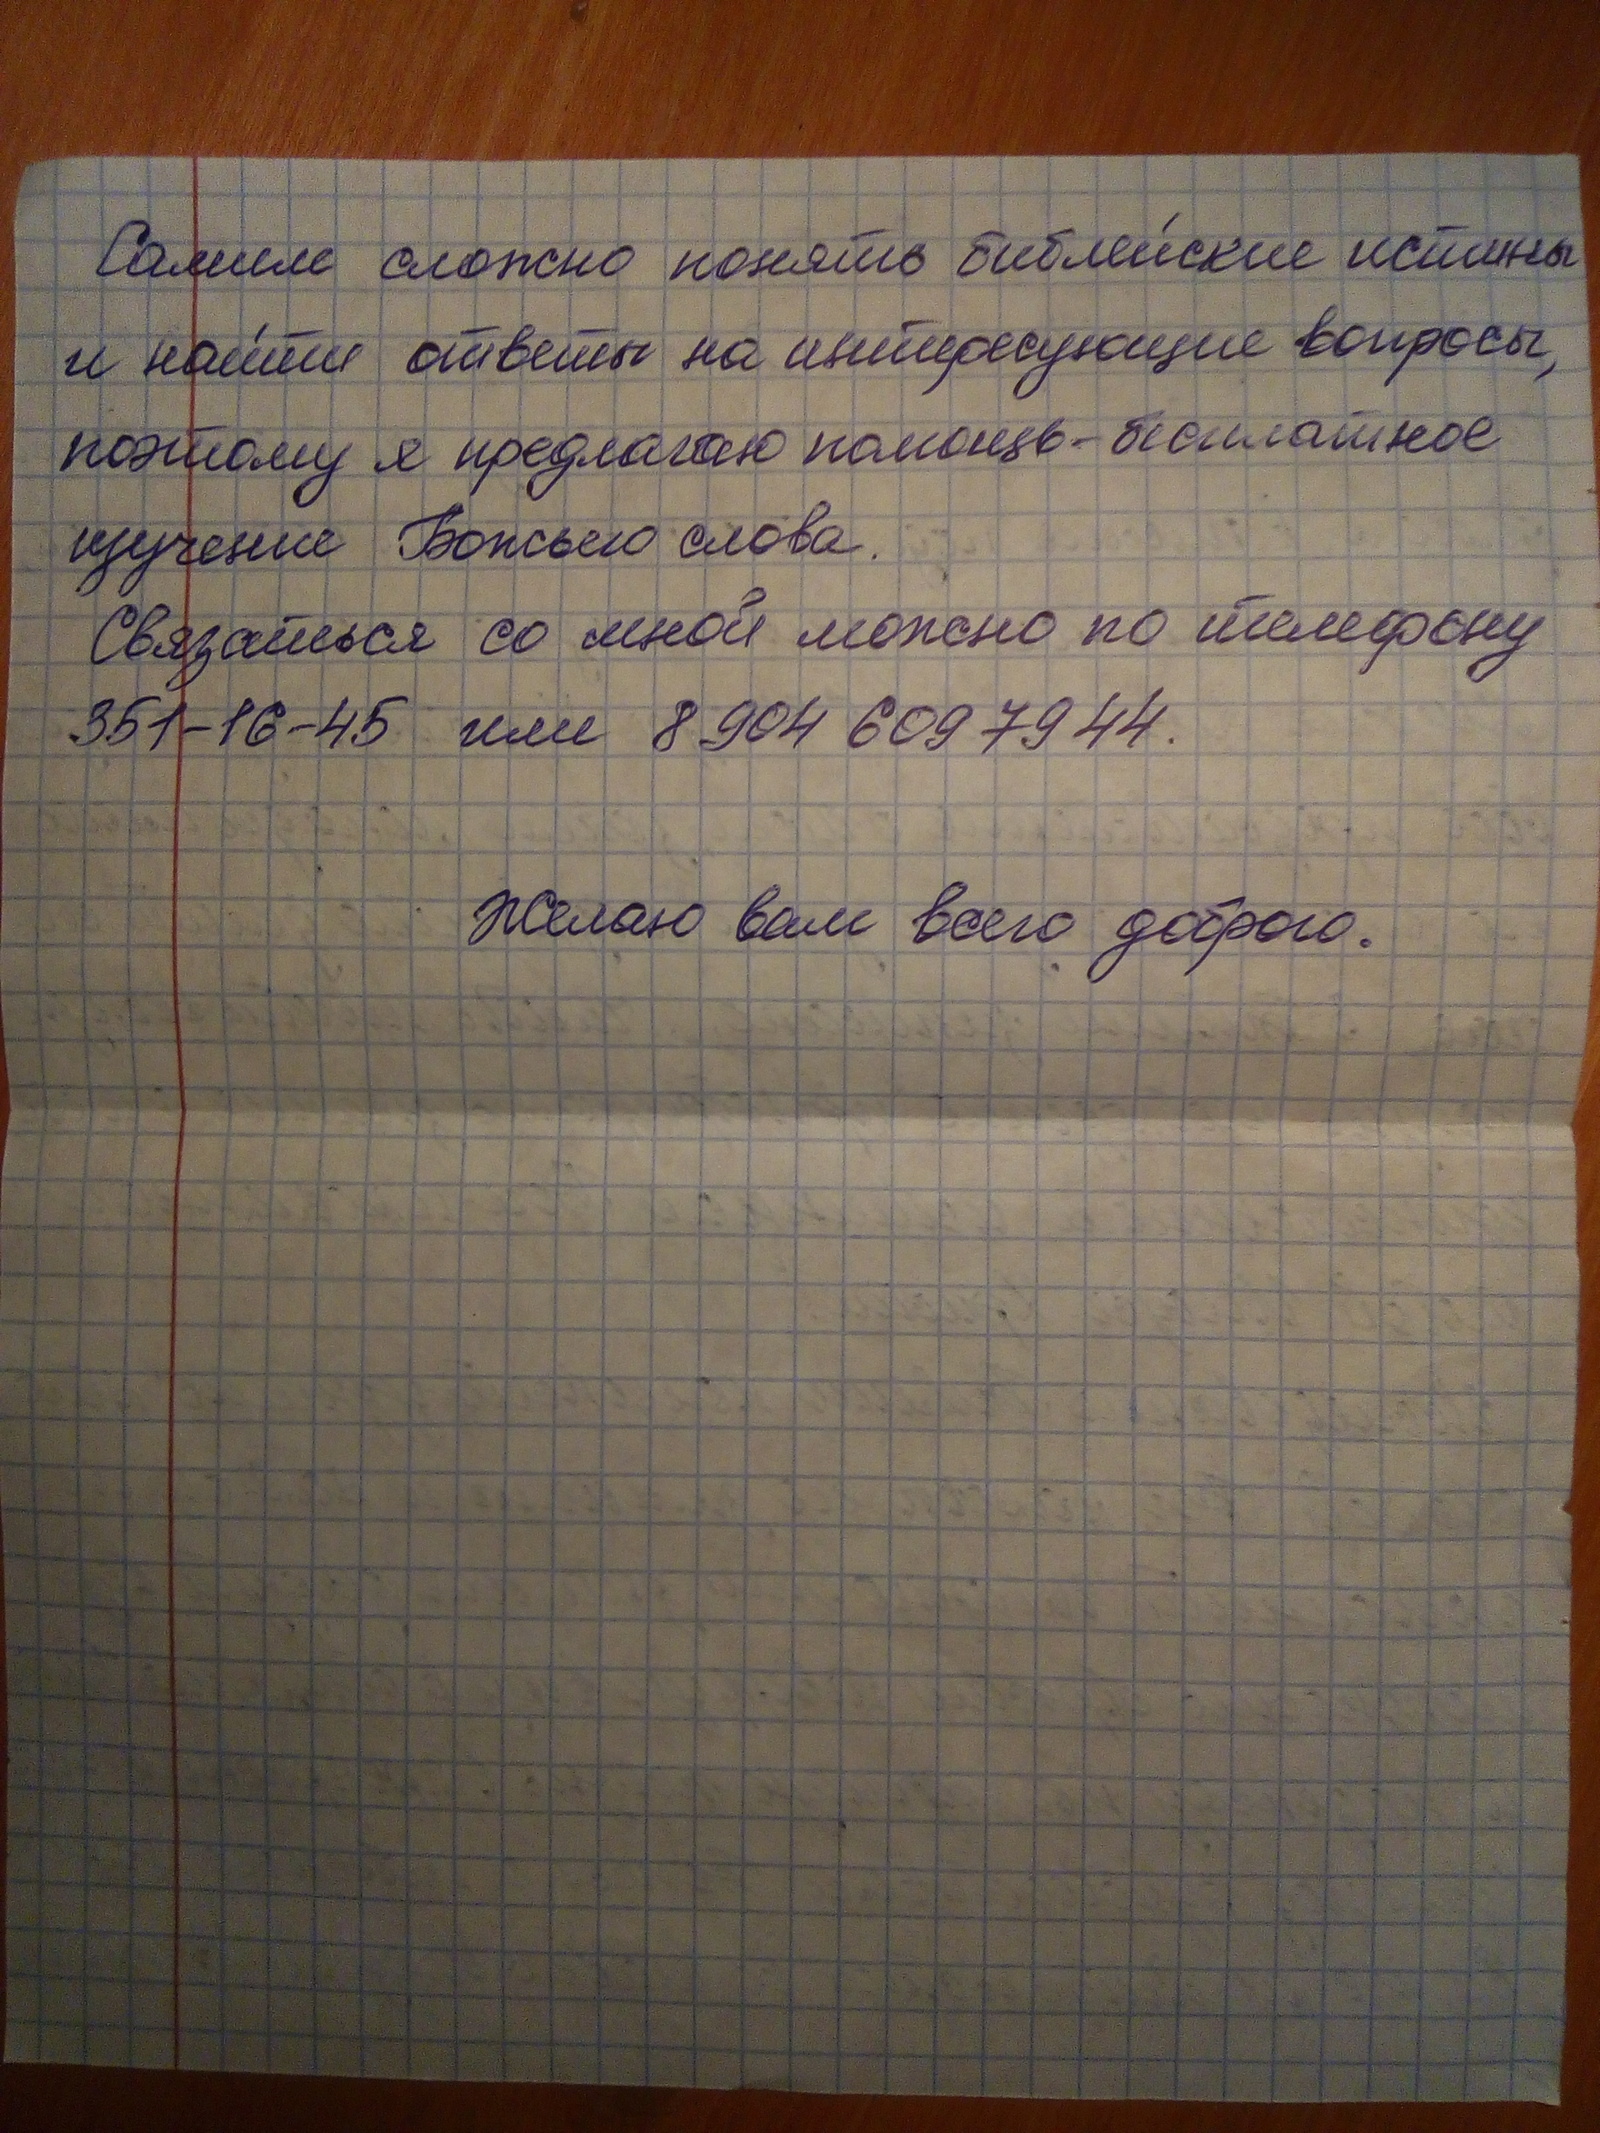 Самим сложно понять библейские истины
и найти ответы на интересующие вопросы,
поэтому я предлагаю помощь - бесплатное
изучение Божьего слова.
Связаться со мной можно по телефону
351-16-45 или 8 904 609 79 44.
Желаю вам всего доброго.